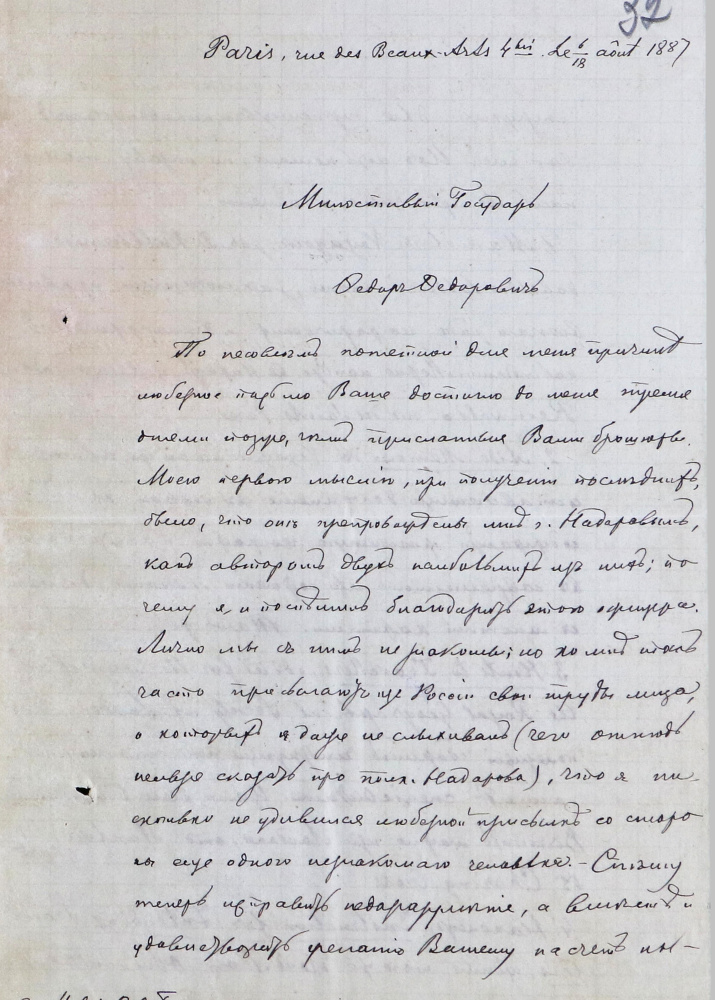 32
Paris, rue des Beaux-Arts 4 bis. Le 6/18 août 1887
Милостивый Государь
Ѳедоръ Ѳедоровичъ
По несовсѣмъ понятной для меня причинѣ
любезное письмо Ваше достигло до меня тремя
днями позже, чѣмъ присланныя Вами брошюры.
Моею первою мыслію, при полученіи послѣднихъ,
было, что онѣ препровождены мнѣ г. Надаровымъ,
какъ авторомъ двухъ наибольшихъ изъ нихъ; по
чему я и поспѣшилъ благодарить этого офицера.
Лично мы съ нимъ незнакомы; но ко мнѣ такъ
часто присылаютъ изъ Россіи свои труды лица,
о которыхъ я даже не слыхивалъ (чего отнюдь
нельзя сказать про полк. Надарова), что я ни-
сколько не удивился любезной присылкѣ со сторо
ны еще одного незнакомаго человѣка. - Спѣшу
теперь исправить недоразумѣніе, а вмѣстѣ и
удовлетворить желанію Вашему насчетъ